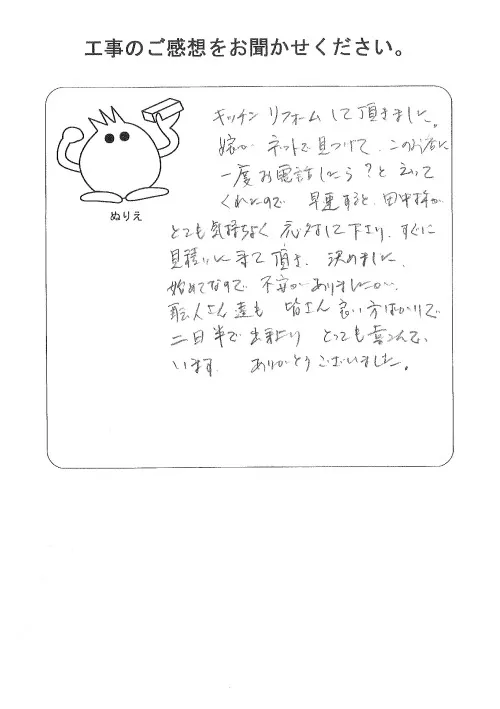 工事のご感想をお聞かせください。
キッチンリフォームして頂きました。
嫁がネットで見つけて、このお店に
一度お電話したら？と言って
くれたので 早速すると、田中様が
ぬりえ
とても気持ちよく 応対して下さり、すぐに
見積りに来て頂き、決めました。
始めてなので 不安がありましたが、
職人さん達も 皆さん良い方ばかりで
二日半で出来上り とっても喜んで
います。 ありがとうございました。